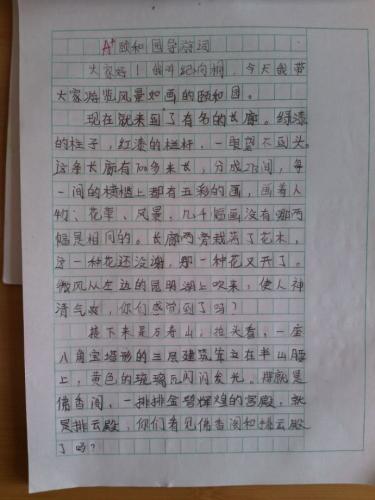 A+ 颐和园导游词
大家好!我叫纪向桐,今天我带
大家游览风景如画的颐和园。
现在就来到了有名的长廊。绿漆
的柱子,红漆的栏杆,一眼望不到头。
这条长廊有700多米长,分成273间,每
一间的横槛上都有五彩的画,画着人
物、花草、风景,几千幅画没有哪两
幅是相同的。长廊两旁栽满了花木,
这一种花还没谢,那一种花又开了。
微风从左边的昆明湖上吹来,使人神
清气爽,你们感觉到了吗?
接下来是万寿山,抬头看,一座
八角宝塔形的三层建筑耸立在半山腰
上,黄色的琉璃瓦闪闪发光。那就是
佛香阁,一排排金碧辉煌的宫殿,就
是排云殿,你们看见佛香阁和排云殿
了吗?